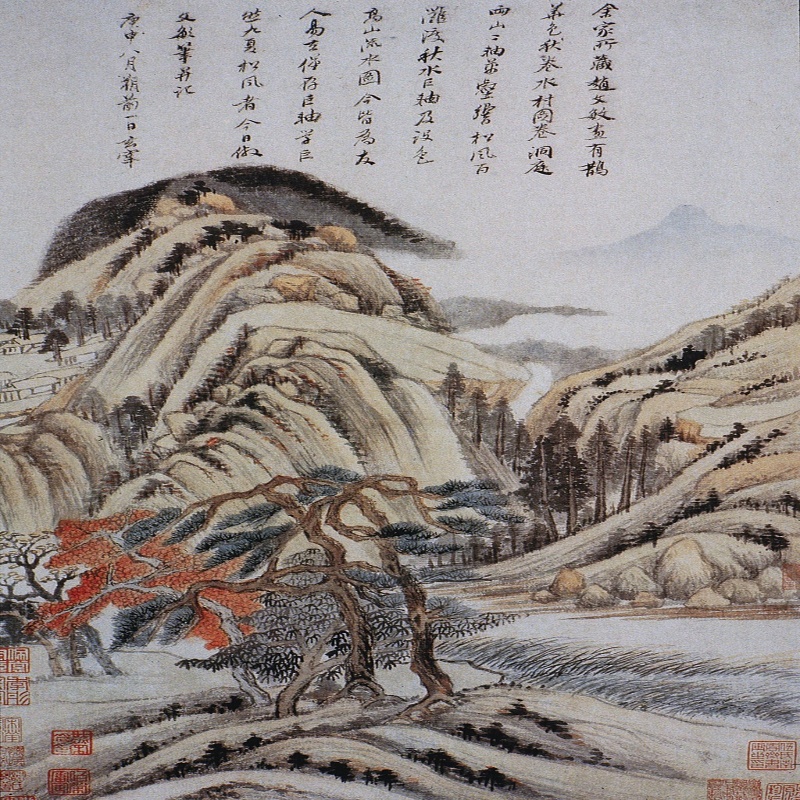 余家所藏趙文敏畫有鵲
華色秋卷水村圖卷洞庭
兩山二軸萬壑響松風百
灘渡秋水巨軸及設色
高山流水圖今皆為友
人易去僅存巨軸學巨
然九夏松風者今日倣
文敏筆并記
庚申八月朔前一日玄宰